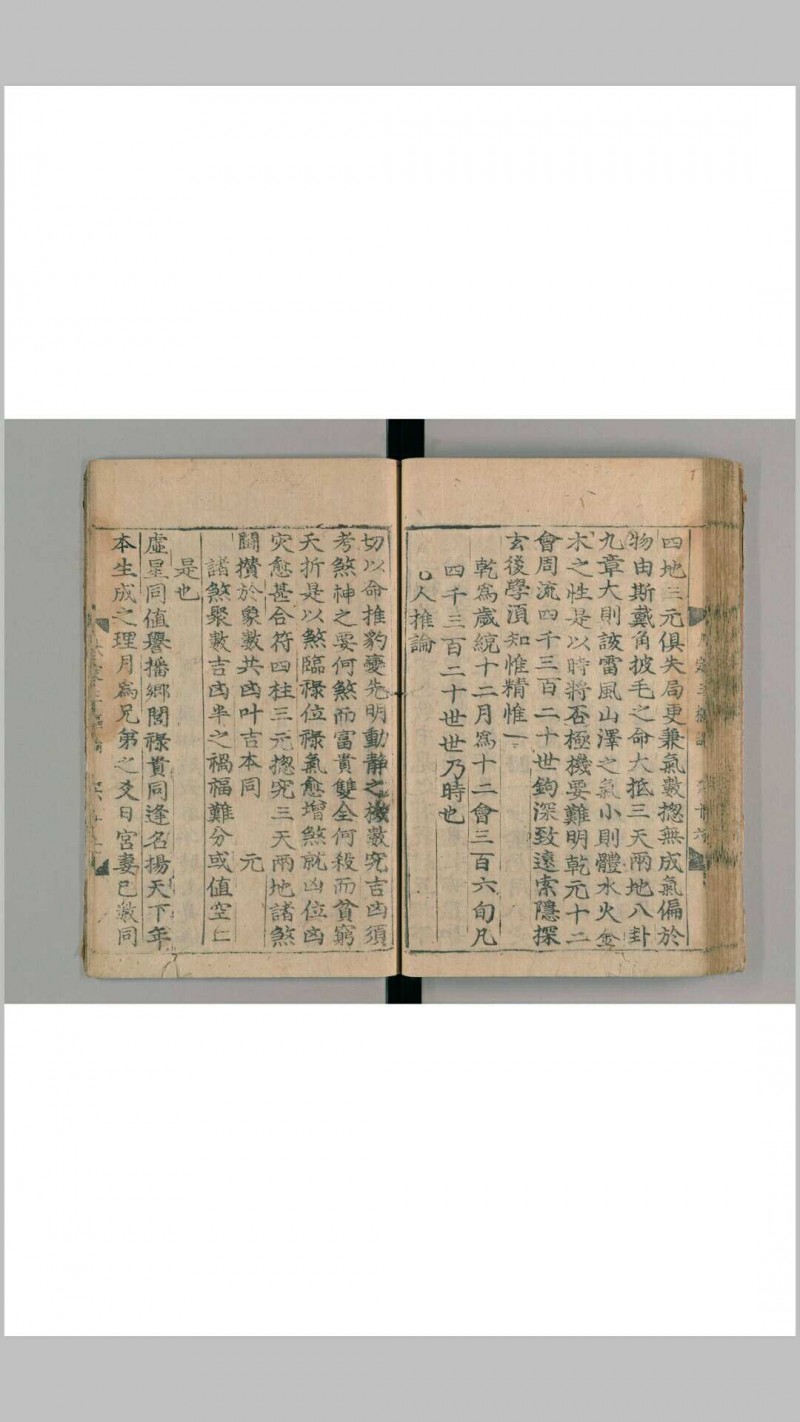 四地三元俱失局更兼氣數揔無成氣偏於
物由斯戴角披毛之命大抵三天兩地八卦
九章大則該雷風山澤之氣小則體水火金
木之性是以時將否極機要難明乾元十二
會周流四千三百二十世鈎深致遠索隱探
玄後學湏知惟精惟一
乾爲歲統十二月爲十二會三百六旬凡
四千三百二十世世乃時也
人推論
切以命推豹變先明動静之機數究吉凶須
考煞神之要何煞而富貴雙全何殺而貧窮
夭折是以煞臨祿位祿氣愈增煞就凶位凶
灾愈甚合符四柱三元揔究三天兩地諸煞
鬪攢於象數共凶叶吉本同 元
諸煞聚數吉凶半之禍福難分或值空亡
是也
虛星同值譽播郷閭祿貴同逢名揚天下年
本生成之理月爲兄第之爻日宮妻已數同